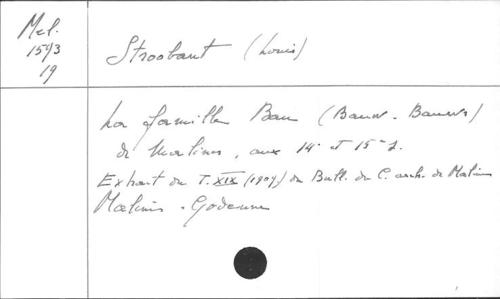 Mel.
1573
19
Stroobant (Louis)
La famille Bau (Bauw. Bauws)
de Malines, aux 14e et 15e s.
Extrait du T. XIX (1909) du Bull. du C. arch. de Malines
Malines. Godenne